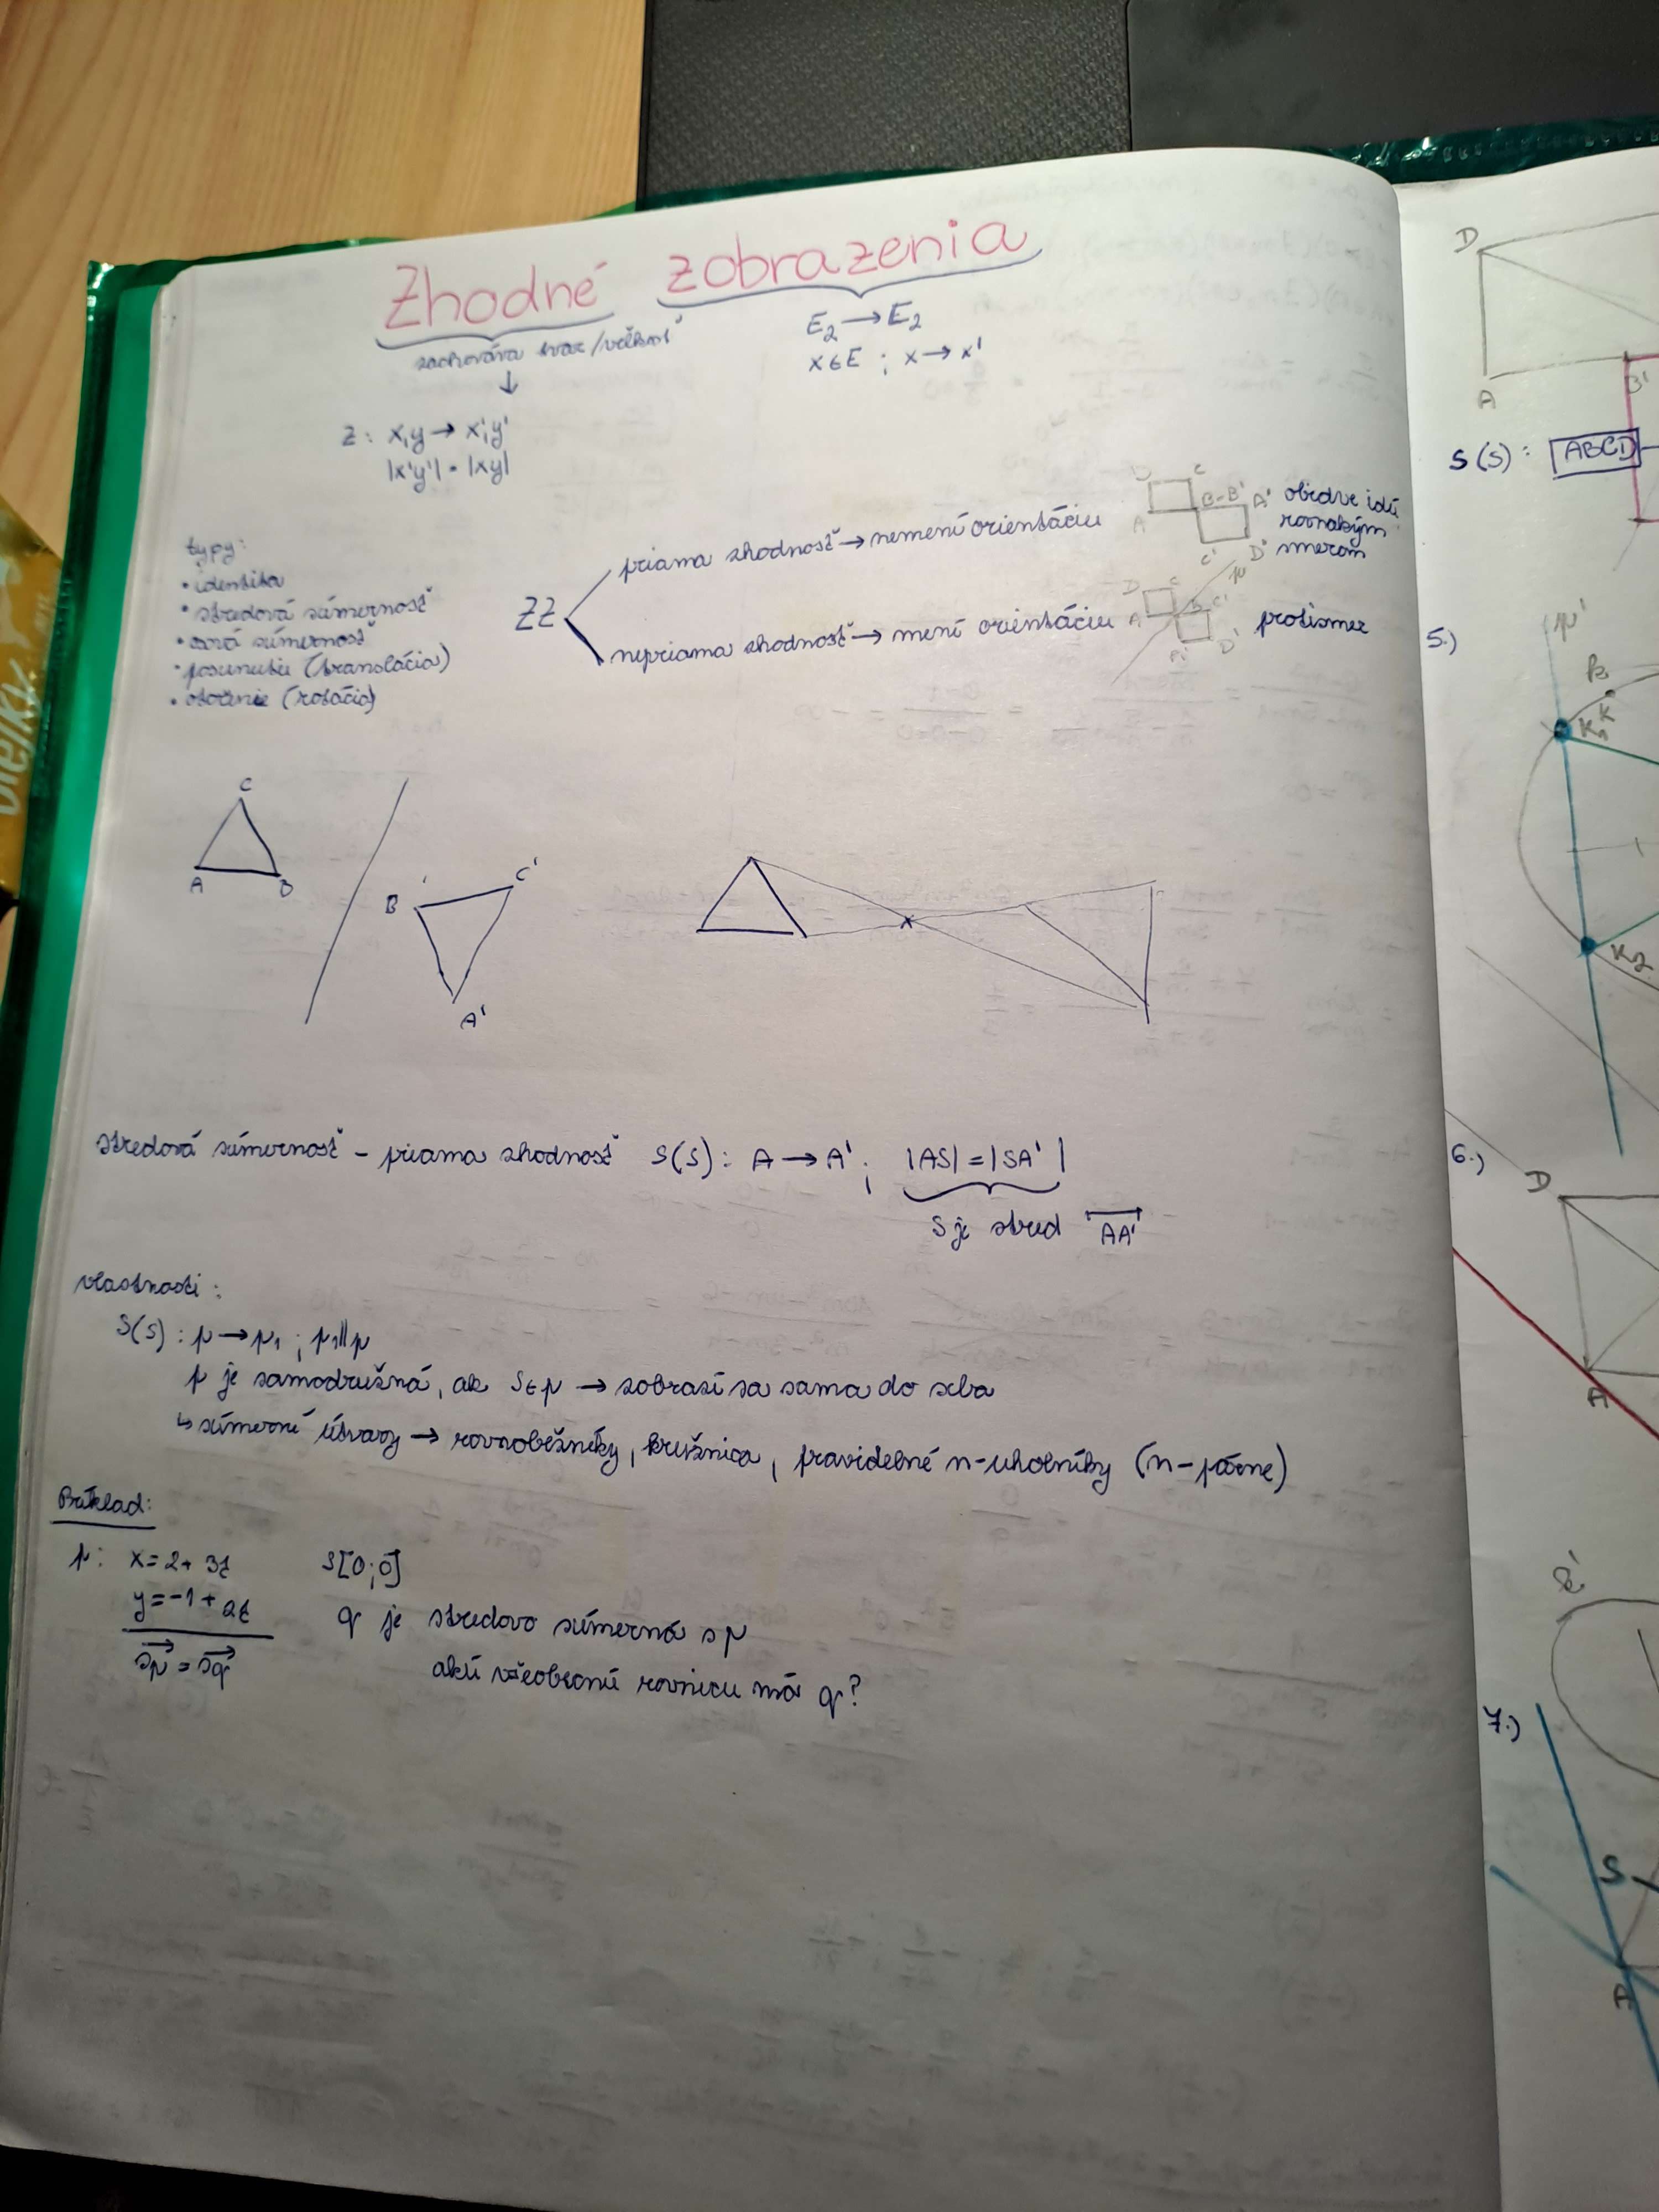 Zhodné zobrazenia
zachováva tvar/veľkosť
E₂ → E₂
x ∈ E ; x → x'
↓
Z: x,y → x',y'
|x'y'| = |xy|
typy:
• identita
• stredová súmernosť
• osová súmernosť
• posunutie (translácia)
• otočenie (rotácia)
ZZ
priama zhodnosť → nemení orientáciu
D C
A B=B' A'
C' D'
obidve idú
rovnakým
smerom
nepriama zhodnosť → mení orientáciu
D C
A B C'
D'
p
protismer
C
A B
B' C'
A'
x
stredová súmernosť - priama zhodnosť S(S): A → A' ; |AS| = |SA'|
S je stred AA'
vlastnosti:
S(S): p → p₁ ; p₁ || p
p je samodružná, ak S ∈ p → zobrazí sa sama do seba
↳ súmerné útvary → rovnobežníky, kružnica, pravidelné n-uholníky (n-párne)
Príklad:
p: x = 2 + 3t S[0;0]
y = -1 + 2t q je stredovo súmerná s p
sp = sq akú všeobecnú rovnicu má q?
D
A
B'
S(S): ABCD
5.)
p'
k
K₁ K
K₂
6.)
D
A
k'
7.)
S
A